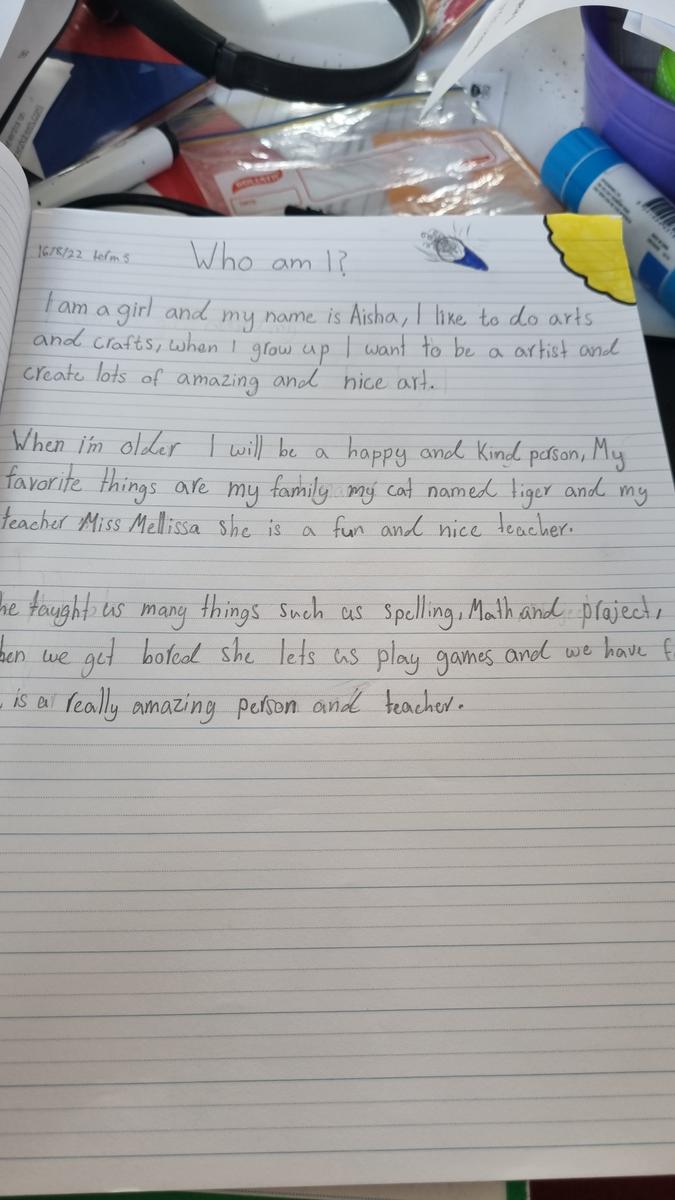 16/8/22 term 3
Who am I?
I am a girl and my name is Aisha, I like to do arts
and crafts, when I grow up I want to be a artist and
create lots of amazing and nice art.
When i'm older I will be a happy and kind person, My
favorite things are my family my cat named tiger and my
teacher Miss Mellissa she is a fun and nice teacher.
he taught us many things such as spelling, Math and project,
hen we get bored she lets us play games and we have f
is a really amazing person and teacher.